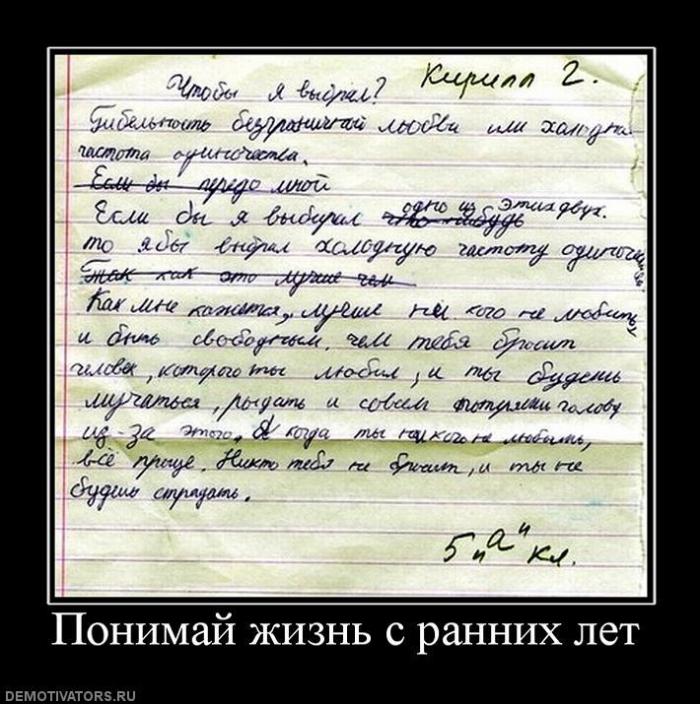 Чтобы я выбрал? Кирилл 2.
Гибельность безграничной любви или холодна
частота одиночества.
Если бы передо мной
Если бы я выбирал что-нибудь одно из этих двух.
то я бы выбрал холодную частоту одиночества.
Так как это лучше чем
Как мне кажется, лучше ни кого не любить
и быть свободным, чем тебя бросит
человек, которого ты любил, и ты будешь
мучаться, рыдать и совсем потеряеш голову
из-за этого. А когда ты ни кого не любишь,
всё проще. Никто тебя не бросит, и ты не
будешь страдать.
5 "а" кл.
Понимай жизнь с ранних лет
DEMOTIVATORS.RU